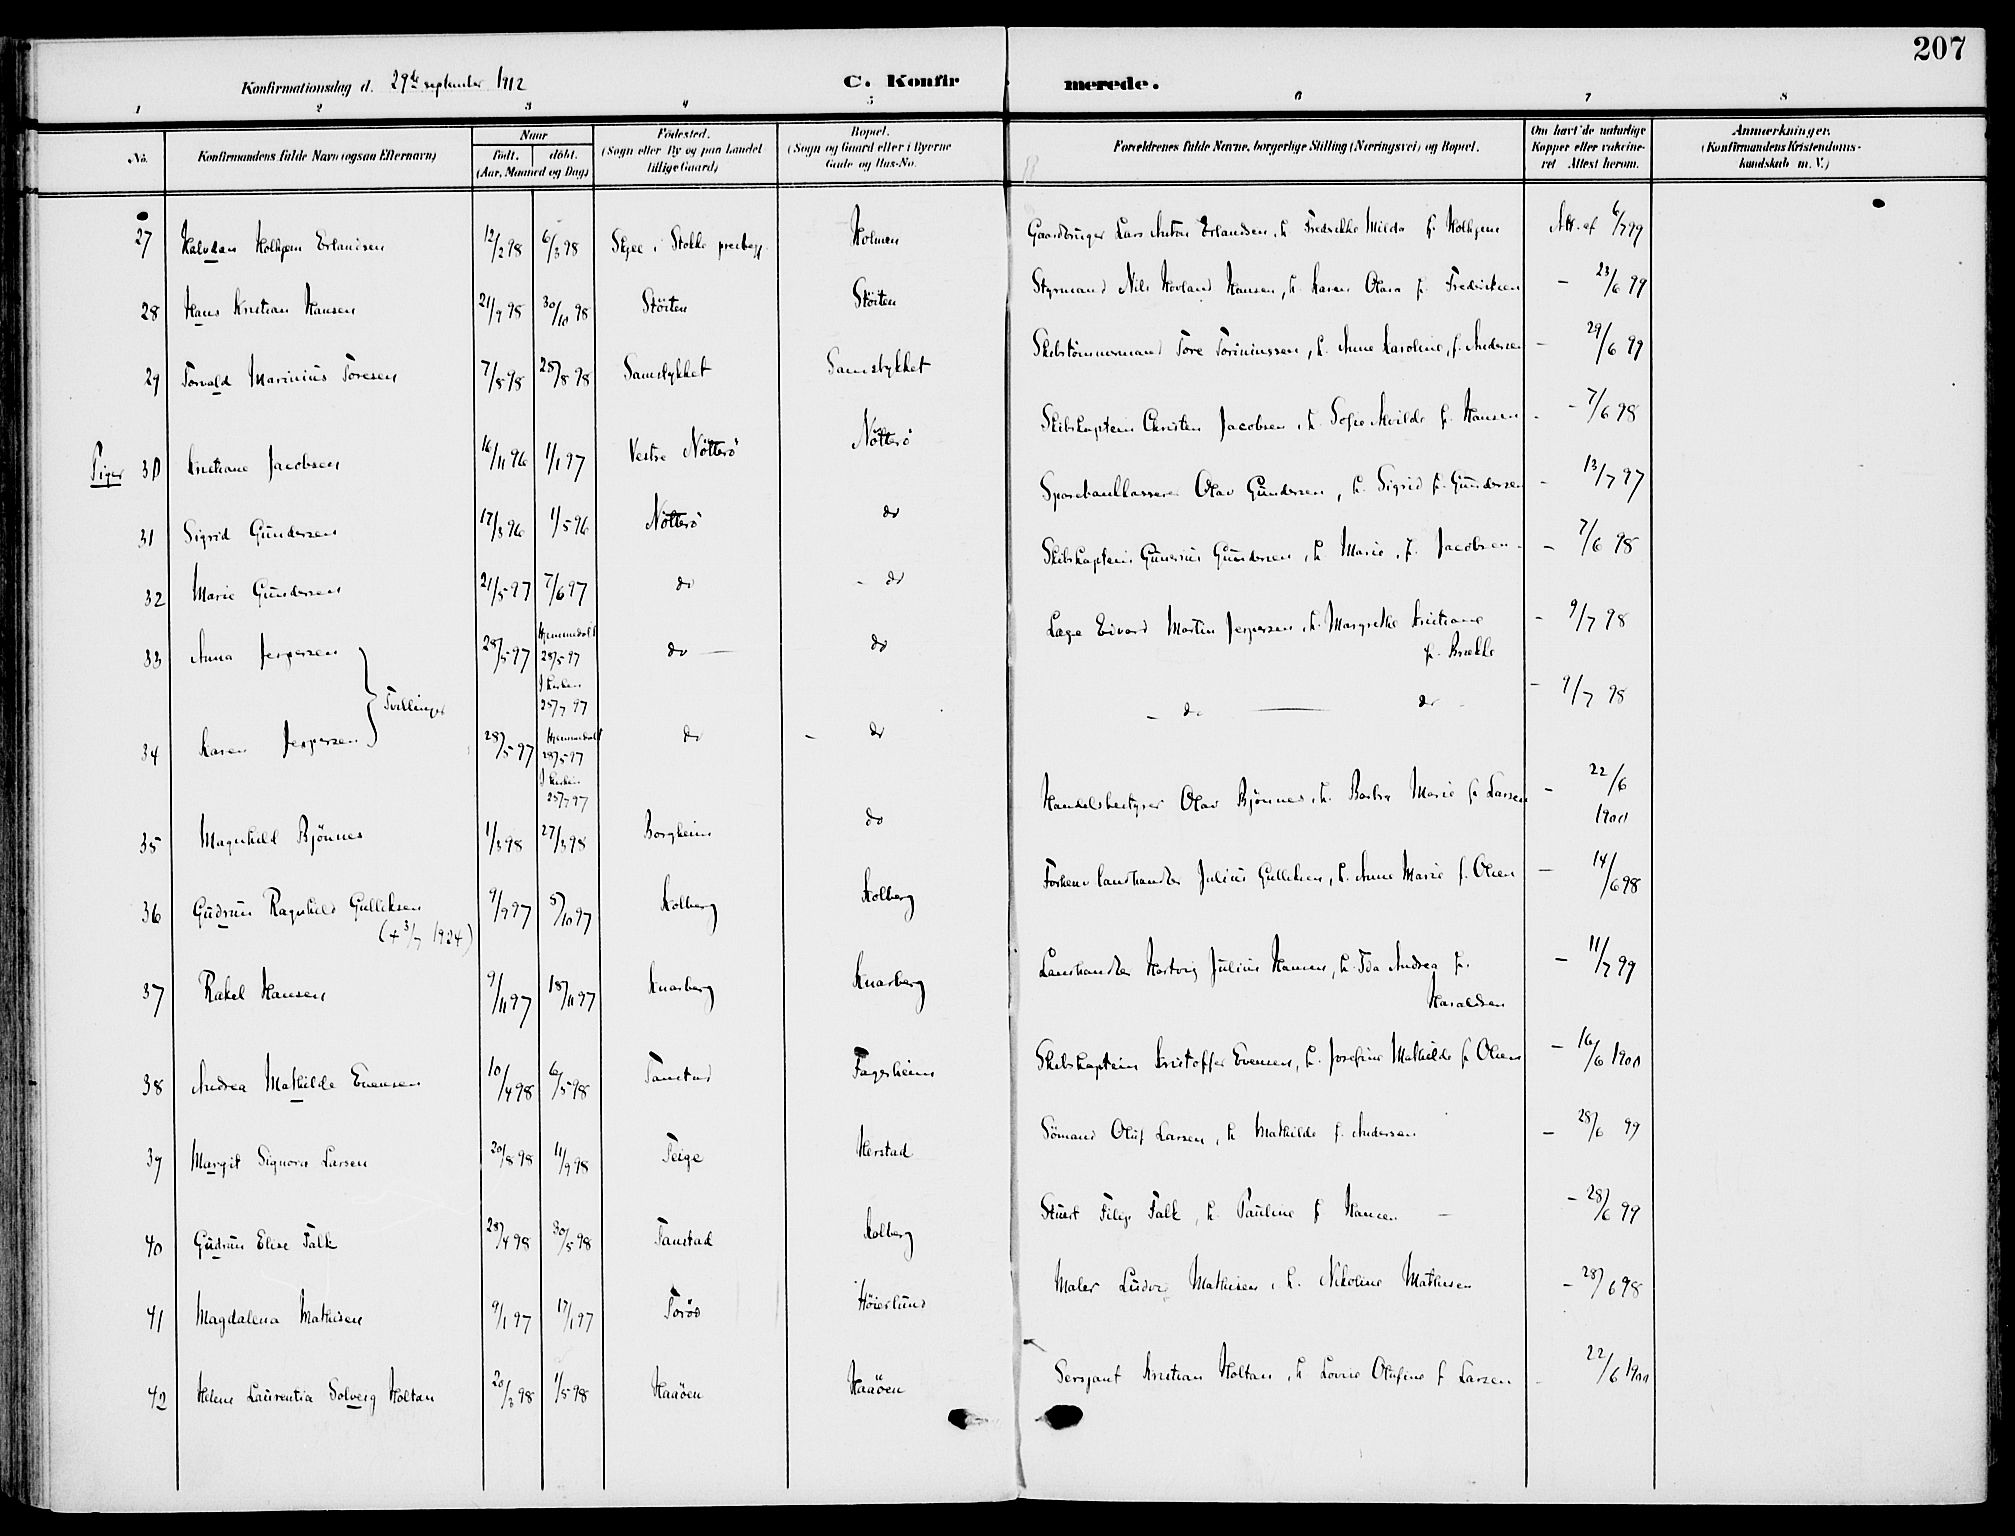 207
Konfirmationsdag d. 29de september 1912
C. Konfir merede.
1 2 3 4 5 6 7 8
No. Konfirmandens fulde Navn (ogsaa Efternavn) Naar Födested. Bopæl. Forældrenes fulde Navne, borgerlige Stilling (Næringsvei) og Bopæl. Om havt de naturlige Anmærkninger.
födt. döbt. (Sogn eller By og paa Landet (Sogn og Gaard eller i Byerne Kopper eller vaccine- (Konfirmandens Kristendoms-
(Aar, Maaned og Dag) tillige Gaard) Gade og Hus-No. ret Attest herom. kundskab m. V.)
27 Halvdan Holhjem Erlandsen 12/2 98 6/3 98 Skjee i Stokke prestegj. Holmen Gaardbruger Lars Anton Erlandsen, h. Fredrikke Milda f. Holhjem Att. af 6/7 99
28 Hans Kristian Hansen 21/9 98 30/10 98 Stöiten Stöiten Styrmand Nils Hovland Hansen, h. Karen Olava f. Fredriksen - 23/6 99
29 Torvald Marinius Toresen 7/8 98 28/8 98 Samstykket Samstykket Skibstömmermand Tore Toriniussen, h. Anne Karoline, f. Andersen - 29/6 99
Piger 30 Kristiane Jacobsen 16/11 96 1/1 97 Vestre Nötterö Nötterö Skibskaptein Christen Jacobsen, h. Sofie Alvilde f. Hansen - 7/6 98
31 Sigrid Gundersen 17/3 96 1/5 96 Nötterö do Sparebankkasserer Olav Gundersen, h. Sigrid f. Gundersen - 13/7 97
32 Marie Gundersen 21/5 97 7/6 97 do - do Skibskaptein Gunerius Gundersen, h. Marie, f. Jacobsen - 7/6 98
33 Anna Jespersen 28/5 97 Hjemmedöbt 28/5 97 I kirken 25/7 97 do do Læge Eivard Martin Jespersen, h. Margrethe Kristiane - 9/7 98
f. Brekke
Tvillinger
34 Karen Jespersen 28/5 97 Hjemmedöbt 28/5 97 I kirken 25/7 97 do - do - do do - 9/7 98
35 Magnhild Bjönnes 1/3 98 27/3 98 Borgheim do Handelsbestyrer Olav Bjönnes, h. Barbra Marie f. Larsen - 22/6 1900
36 Gudrun Ragnhild Gulliksen 9/9 97 5/10 97 Kolberg Kolberg Forhenv. landhandler Julius Gulliksen, h. Anne Marie f. Olsen - 14/6 98
(+ 3/7 1924)
37 Rakel Hansen 9/11 97 18/11 97 Knarberg Knarberg Landhandler Hartvig Julius Hansen, h. Ida Andrea f. - 11/7 99
Haraldsen
38 Andrea Mathilde Evensen 10/4 98 6/5 98 Tanstad Fagerheim Skibskaptein Kristoffer Evensen, h. Josefine Mathilde f. Olsen - 16/6 1900
39 Margit Signora Larsen 20/8 98 11/9 98 Teige Herstad Sömand Oluf Larsen, h. Mathilde f. Andersen - 28/6 99
40 Gudrun Elise Falk 28/4 98 30/5 98 Tanstad Kolberg Stuert Filip Falk, h. Pauline f Hansen - 28/6 99
41 Magdalena Mathisen 9/1 97 17/1 97 Toröd Höierlund Maler Ludvig Mathisen, h. Nikoline Mathisen - 28/6 98
42 Helene Laurentia Solveig Holtan 20/3 98 1/5 98 Haaöen Haaöen Sersjant Kristian Holtan, h. Lovise Olufine f Larsen - 22/6 1900